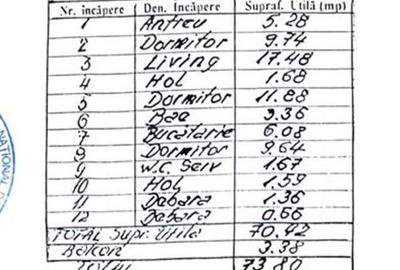 Nr. încăpere Den. Încăpere Supraf. Utilă (mp)
1 Antreu 5.28
2 Dormitor 9.74
3 Living 17.48
4 Hol 1.68
5 Dormitor 11.88
6 Bae 3.36
7 Bucătărie 6.08
8 Dormitor 9.64
9 W.C. Serv 1.67
10 Hol 1.59
11 Debara 1.36
12 Debara 0.66
TOTAL Supr. Utilă 70.42
Balcon 3.38
TOTAL 73.80
NAȚIONAL